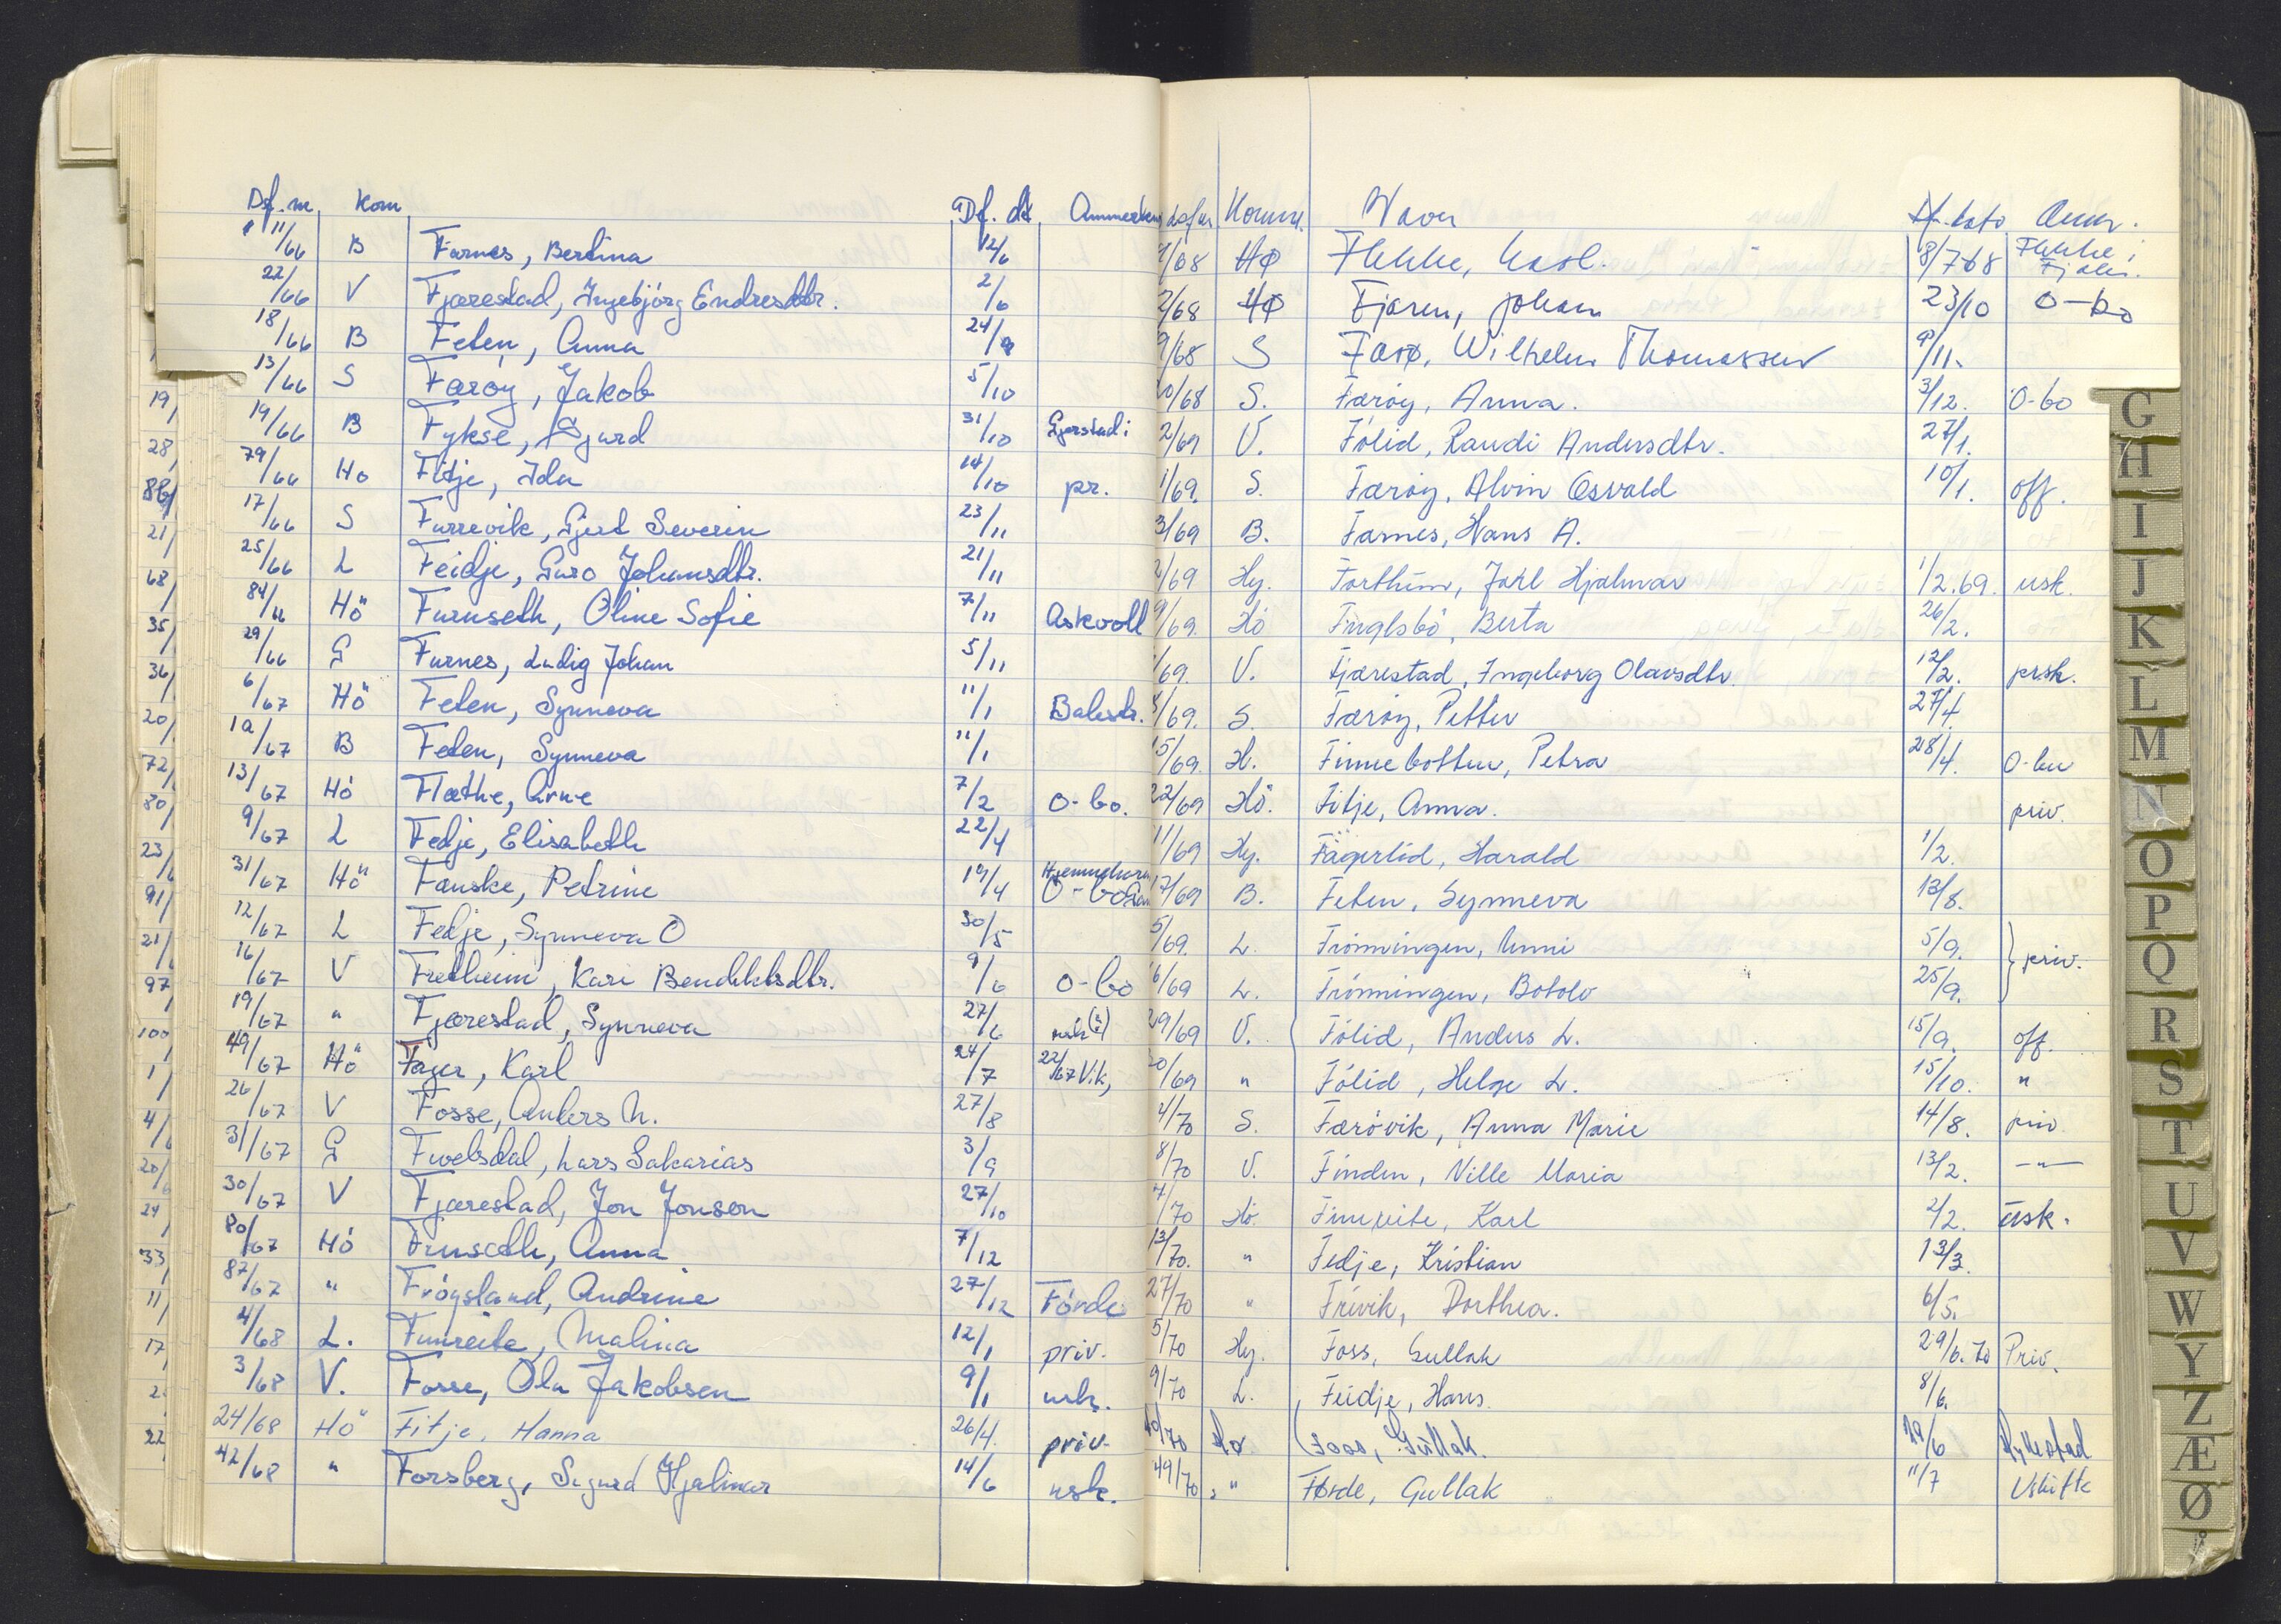 Df. nr. Kom Df. dt
11/66 B Farnes, Bertina 12/6
22/66 V Fjærestad, Ingebjörg Endresdtr. 2/6
18/66 B Feten, Anna 24/9
13/66 S Færöy, Jakob 5/10
19/66 B Fykse, Sjurd 31/10
79/66 Hö Fitje, Ida 14/10 pr.
17/66 S Furrevik, Gjert Severin 23/11
25/66 L Feidje, Guro Johansdtr. 21/11
84/66 Hö Furuseth, Oline Sofie 7/11 Askvoll
29/66 G Furnes, Ludvig Johan 5/11
6/67 Hö Feten, Synneva 11/1 Balestr.
1a/67 B Feten, Synneva 11/1
13/67 Hö Fläthe, Arne 7/2 O-bo.
9/67 L Fedje, Elisabeth 22/4
31/67 Hö Fanske, Petrine 19/4 O-bo
12/67 L Fedje, Synneva O 30/5
16/67 V Fretheim, Kari Bendiktsdtr. 9/6 O-bo
19/67 " Fjærestad, Synneva 27/6
49/67 Hö Fager, Karl 24/7 22/67 Vik,
26/67 V Fosse, Anders N. 27/8
31/67 G Fivelsdal, Lars Sakarias 3/9
30/67 V Fjærestad, Jon Jonson 27/10
80/67 Hö Furuseth, Anna 7/12
87/67 " Fröysland, Andrine 27/12 Förde
4/68 L. Fimreite, Malina 12/1 priv.
3/68 V. Fosse, Ola Jakobsen 9/1 usk.
24/68 Hö Fitje, Hanna 26/4. priv.
42/68 " Forsberg, Sigurd Hjalmar 14/6 usk.
Komm. Navn Df. dato Anm.
/68 HØ Flekke, 8/7-68 Flekke i Fjaler.
2/68 HØ Fjæren, Johan 23/10 O-bo
9/68 S Færø, Wilhelm Thomassen 9/11.
20/68 S. Færöy, Anna. 3/12. O-bo
2/69 V. Fölid, Randi Andersdtr. 27/1.
1/69. S. Færöy, Alvin Osvald 10/1. off.
3/69 B. Farnes, Hans A.
2/69 Hy. Forthun, Jarl Hjalmar 1/2.69. usk.
9/69. Hö Fuglsbö, Berta 26/2.
/69. V. Fjærestad, Ingeborg Olavsdtr. 12/2. prsk.
8/69. S. Færöy, Petter 27/4.
15/69. H. Finnebotten, Petra 28/4. O-bu
22/69 Hö. Fitje, Anna. priv.
11/69 Hy. Fagerlid, Harald 1/2.
17/69 B. Feten, Synneva 13/8.
5/69. L. Frönningen, Unni 5/9. } priv.
6/69 L. Frönningen, Botolv 25/9.
29/69 V. Fölid, Anders L. 15/9. off.
30/69 " Fölid, Helge L. 15/10. "
4/70 S. Færövik, Anna Marie 14/8. priv
8/70 V. Finden, Nille Maria 13/2. -"-
7/70 Hö. Fimreite, Karl 2/2. usk.
13/70. " Fedje, Kristian 13/3.
27/70 " Frivik, Dorthea. 6/5.
5/70 Hy. Foss, Gullak 29/6.70 Priv.
9/70 L. Feidje, Hans. 8/6.
/70 Hø (Foss, Gullak. 29/6
49/70. " Førde, Gullak 11/7 Uskifte
G
H
I
J
K
L
M
N
O
P
Q
R
S
T
U
V
W
Y
Z
Æ
Ø
Å